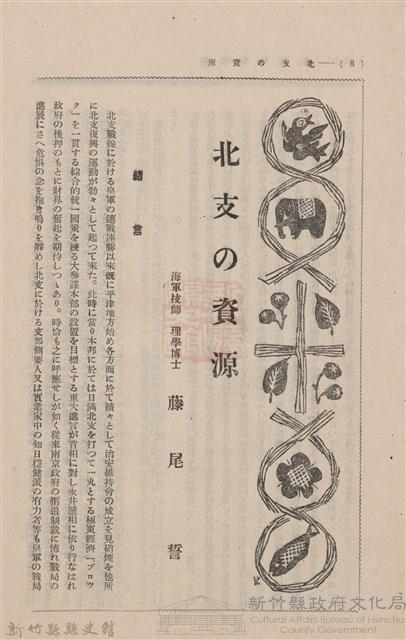 (8)——北支の資源
北支の資源
海軍技師 理學博士 藤尾誓
緒言
北支戰線に於ける皇軍の連戰連勝以來既に平津地方始め各方面に於て續々として治安維持會の成立を見硝煙を他所
に北支復興の運動が勃々として起つて來た。此時に當り本邦に於ては日滿北支を打つて一丸とする極東經濟「ブロッ
ク」を一貫する綜合的統一國策を練る大參謀本部の設置を目標とする重大進言が首相に對し永井遞相に依り行なはれ
政府の後押のもとに財界の奮起を期待しつゝあり。時恰も之に呼應せしが如く從來南京政府の壓迫制裁に怖れ戰局の
進展にさへ危惧の念を抱き鳴りを靜めし北支に於ける支那側要人又は實業家中の知日穩健派の有力者等も皇軍の戰局
新竹縣縣史館
新竹縣政府文化局
Cultural Affairs Bureau of Hsinchu
County Government